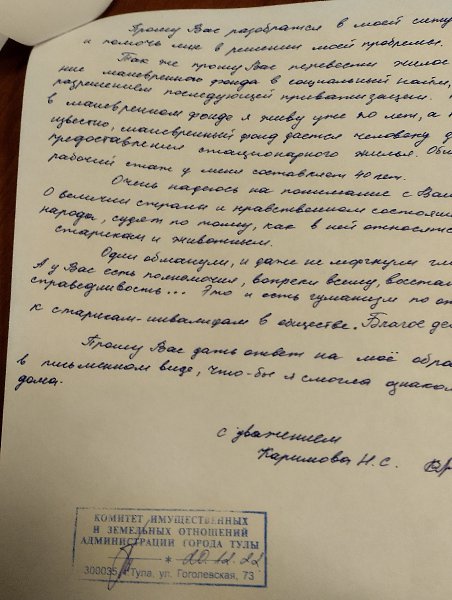 Прошу Вас разобратся в моей ситу
и помочь мне в решении моей проблемы.
Так же прошу Вас перевести жилое
ние маневренного фонда в социальный найм,
разрешением последующей приватизации.
в маневренном фонде я живу уже 20 лет, а
известно, маневренный фонд дается человеку д
предоставления стационарного жилья. Общ
рабочий стаж у меня составляет 40 лет.
Очень надеюсь на понимание с Ваш
О величии страны и нравственном состояни
народа, судят по тому, как в ней относятся
старикам и животным.
Одни обманули, и даже не моргнули гл
А у Вас есть полномочия, вопреки всему, восстан
справедливость... Это и есть гуманизм по от
к старикам-инвалидам в обществе. Благое де
Прошу Вас дать ответ на моё обра
в письменном виде, что-бы я смогла ознаком
дома.
с уважением
Каримова Н.С.
КОМИТЕТ ИМУЩЕСТВЕННЫХ
И ЗЕМЕЛЬНЫХ ОТНОШЕНИЙ
АДМИНИСТРАЦИИ ГОРОДА ТУЛЫ
* 20.12.22
300035, г.Тула, ул. Гоголевская, 73